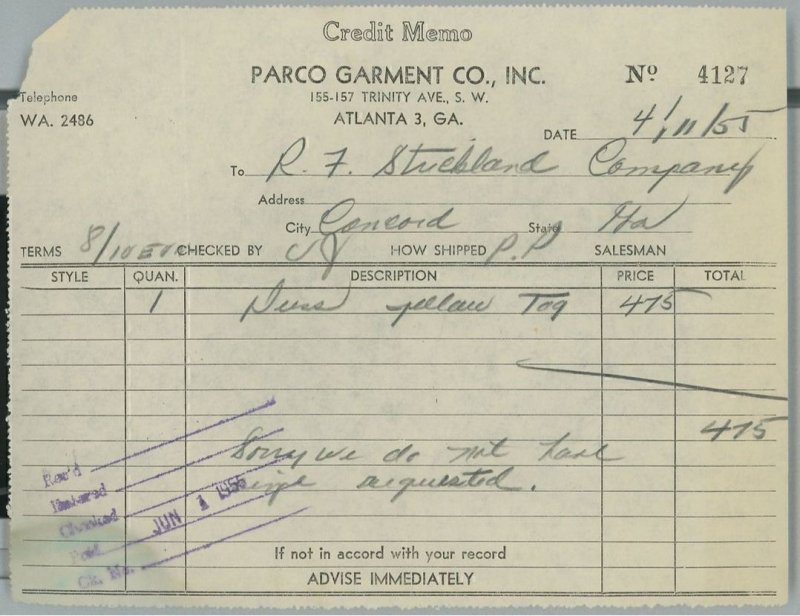 Credit Memo
PARCO GARMENT CO., INC.
Nº 4127
155-157 TRINITY AVE., S. W.
Telephone
WA. 2486
ATLANTA 3, GA.
DATE 4/11/55
To R. F. Strickland Company
Address
City Concord State Ga
TERMS 8/10 EOM CHECKED BY HOW SHIPPED P.P SALESMAN
STYLE QUAN. DESCRIPTION PRICE TOTAL
1 Dress yellow Tag 475
475
Sorry we do not have
requested.
Rec'd
Entered
Checked JUN 1 1955
Paid
Ck. No.
If not in accord with your record
ADVISE IMMEDIATELY